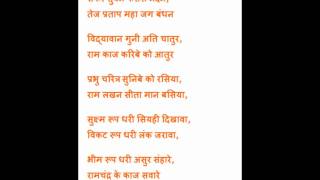 तेज प्रताप महा जग बंधन
विद्यावान गुनी अति चातुर,
राम काज करिबे को आतुर
प्रभु चरित्र सुनिबे को रसिया,
राम लखन सीता मान बसिया,
सुक्ष्म रूप धरी सियही दिखावा,
विकट रूप धरी लंक जरावा,
भीम रूप धरी असुर संहारे,
रामचंद्र के काज सवारे